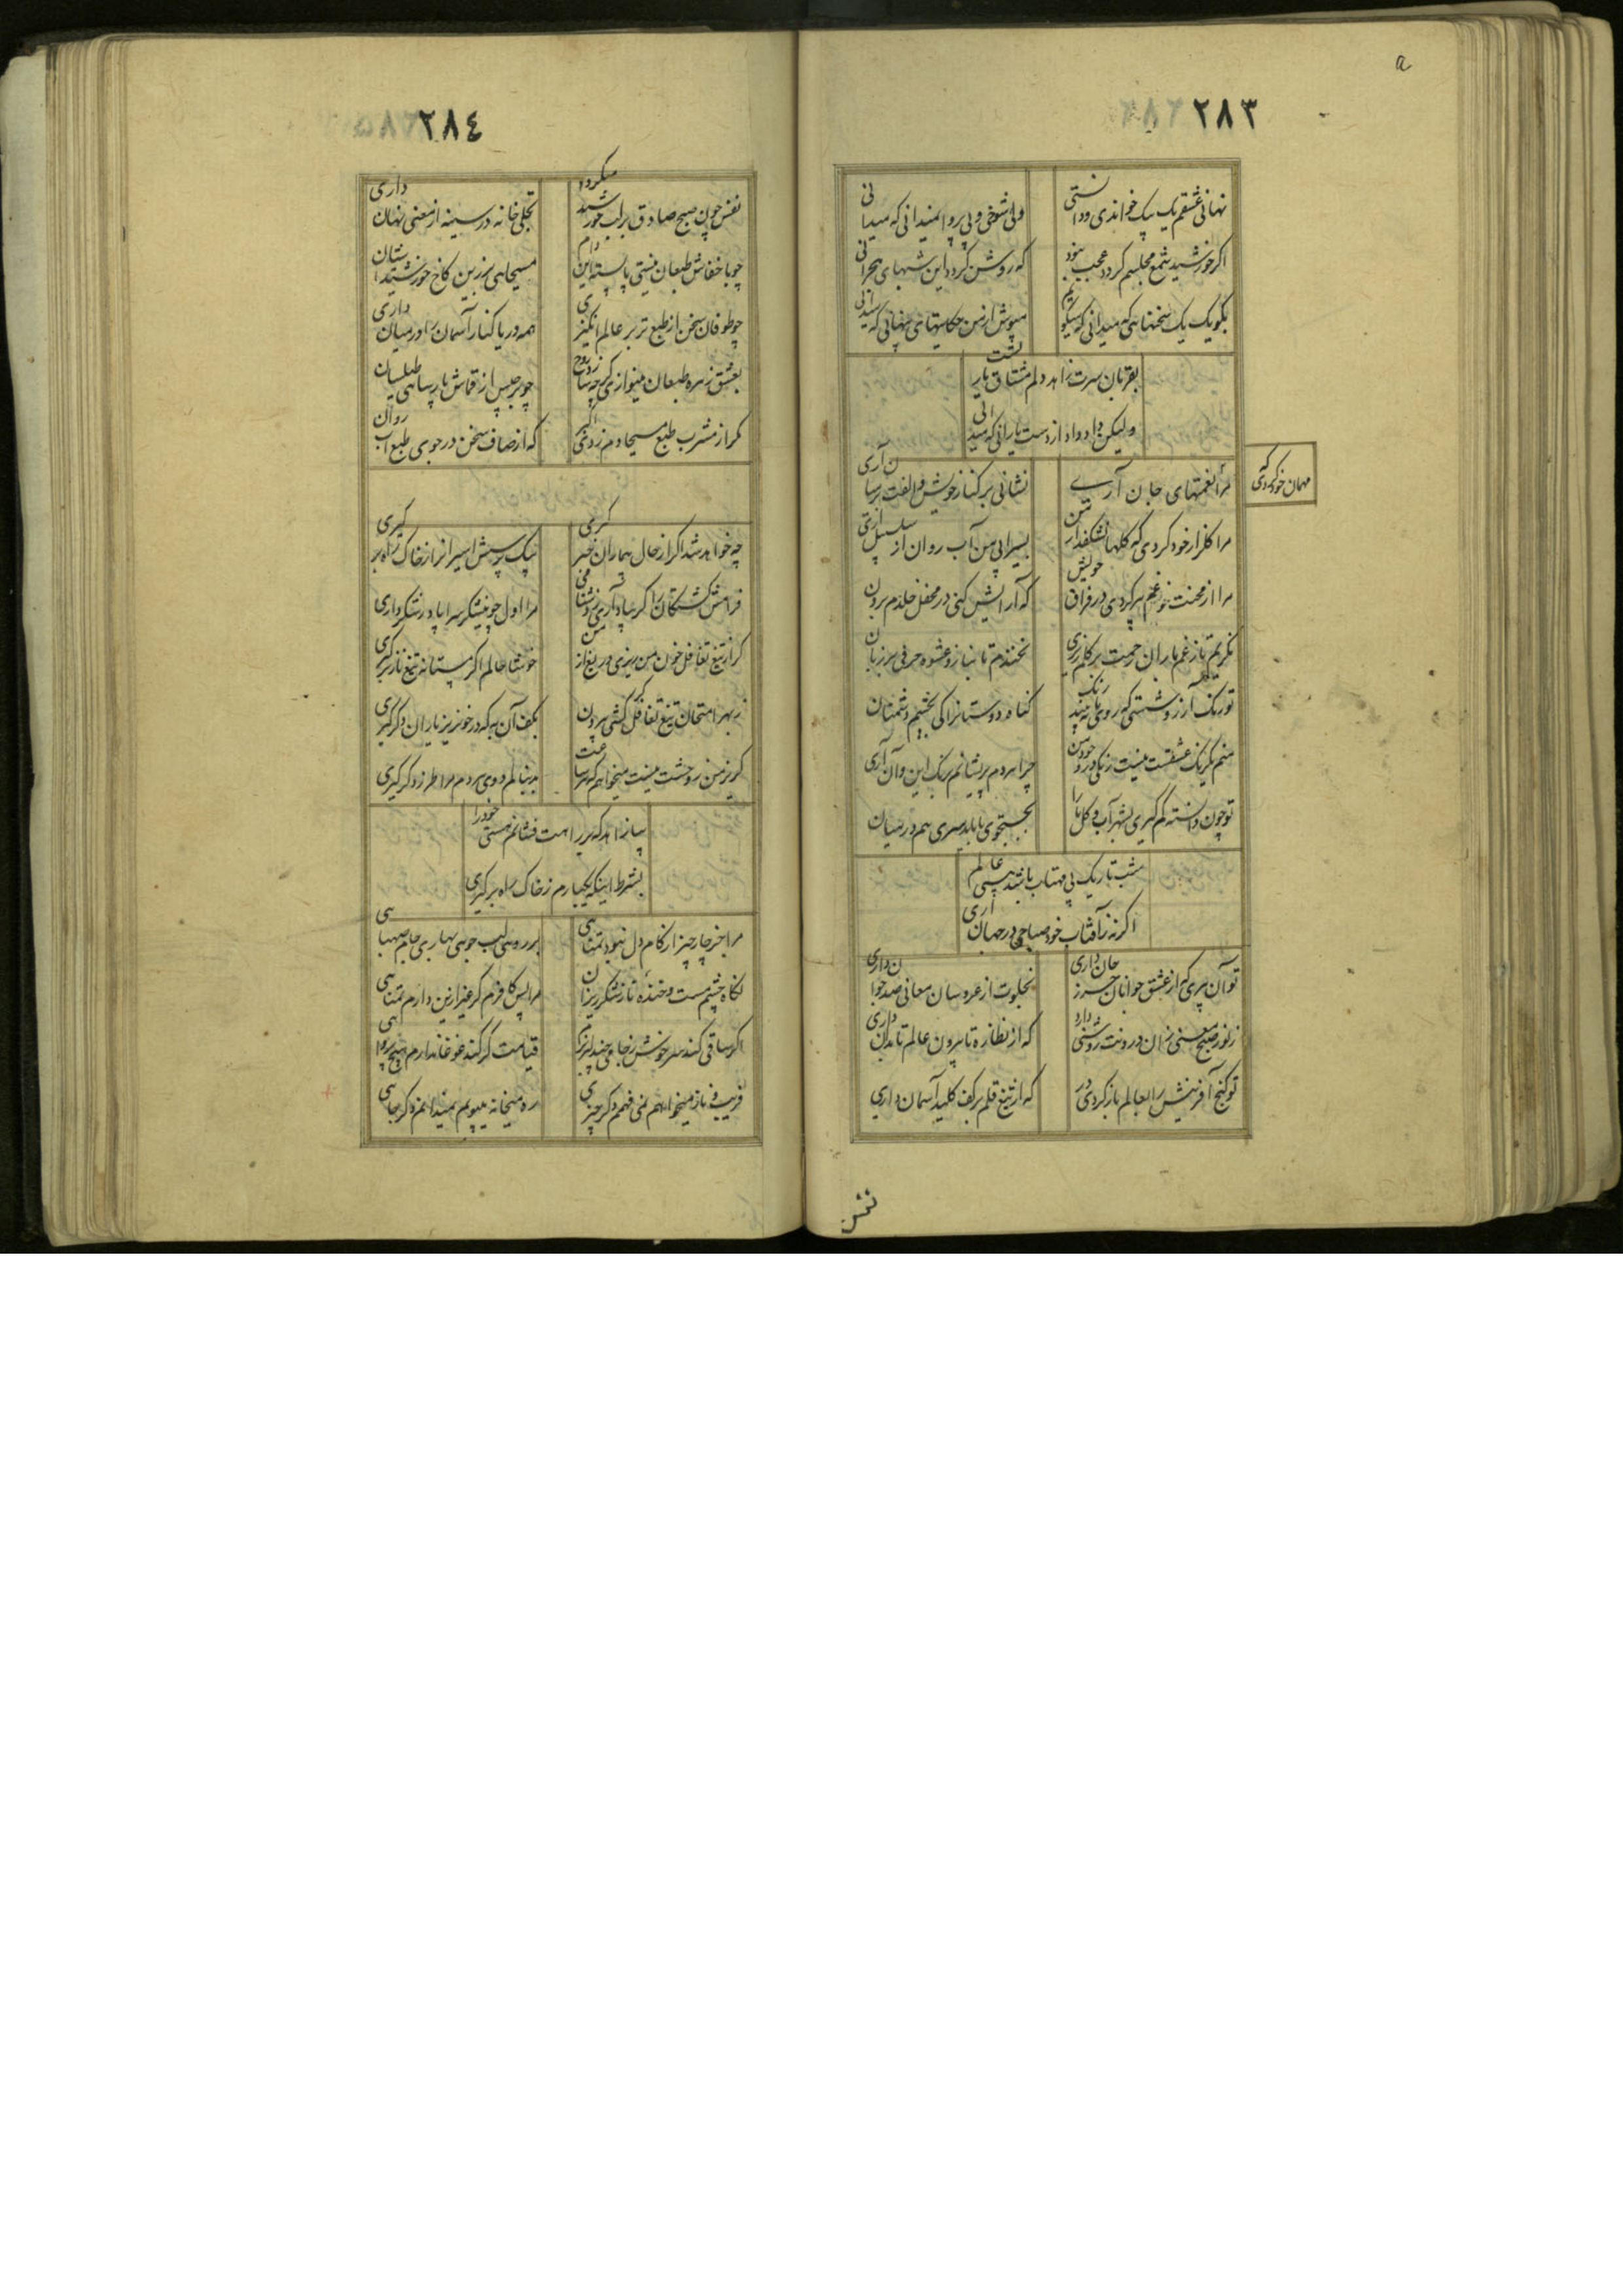 ۲۸۳
نهانی عشقم یک بیک خواندی و دانستی
ولی شوخی و بی پروا نمیدانی که میدانی
اگر خورشید شمع مجلسم گردد عجب نبود
که روشن گردد این شبهای هجرانی
بگو یک یک سخنهایی که میدانی که میگویم
مپوش از من حکایتهای پنهانی که میدانی
بقربان سرت زاهد دلم مشتاق یاریست
ولیکن داد و داد از دست یارانی که میدانی
مهمان خود کردی که
مرا نعمتهای جان آری
نشانی بر کنار خویش و الفت در میان آری
مرا گلزار خود کردی که گلها بشکفد از من
بسیرابی من آب روان از سلسبیل آری
مرا از محنت خود غم پر کردی در فراق خویش
که آرایش کنی در محفل خلدم برون
نگریم تا ز غم باران رحمت بر گلم ریزی
نخندم تا نیاز و عشوه حرفی بر زبان
تو رنگ آرزو شستی که روی ما نبیند رنگ
گناه دوستانرا کی بخشم دشمنان
منم یکرنگ عشقت نیست رنگی در وجود من
چرا هر دم پریشانم برنگ این و آن آری
تو چون دانسته گم گیری بشهر آب و گل ما را
بجستجوی ما باید سری هم در میان
شب تاریک بی مهتاب باشد هستی عالم
اگر نه زآفتاب خود صباحی در جهان آری
تو آن پیری که از عشق جوانان حرز جان داری
بخلوت از عروسان معانی صد جوان داری
ز نور صبح معنی زان درونت روشنی دارد
که از نظاره تا بیرون عالم تا بدان داری
تو گنج آفرینش را بعالم باز کردی در
که از تیغ قلم بر کف کلید آسمان داری
۲۸٤
نفس چون صبح صادق بر لب خورشید میگردد
تجلی خانه در سینه از معنی نهان داری
چو با خفاش طبعان نیستی پا بسته این دام
مسیحایی و زرین کاخ خورشید آستان
چو طوفان سخن از طبع تر بر عالم انگیزی
همه دریا کنار آسمان را در میان داری
بعشق زهره طبعان مینوازی گر چه ساز روح
چو برجیس از قماش پارسایی طیلسان
مگر از مشرب طبع مسیحا دم زدی اکبر
که از صاف سخن در جوی طبع آب روان
چه خواهد شد اگر از حال بیماران خبر گیری
بیک پرسش اسیرانرا ز خاک راه بر گیری
فرامش کشتگانرا گر بیاد آری ز مشتاقی
مرا اول چو نیشکر سراپا در شکر داری
گر از تیغ تغافل خون من ریزی دریغ از من
خوشا حالم اگر مستانه تیغ ناز بر گیری
ز بهر امتحان تیغ تغافل گر کشی بیرون
بکف آن به که در خونریز یاران دگر گیری
گریز من ز وحشت نیست میخواهم که هر ساعت
بدنبالم دوی هر دم مرا طرز دگر گیری
بیا زاهد که در راهت فشانم هستی خود را
بشرط اینکه یکبارم ز خاک راه بر گیری
مرا بجز چار چیز از کام دل نبود تمنایی
بر رویی لب جویی بهاری جام صهبایی
نگاه چشم مست و خنده ناز شکر ریزان
مرا بس کافرم گر غیر ازین دارم تمنایی
اگر ساقی کند سر خوش ز جامی چند لبریزم
قیامت گر کند غوغا ندارم هیچ پروایی
فریب و ناز میخواهم نمی فهمم دگر چیزی
ره میخانه میپویم نمیدانم دگر جایی